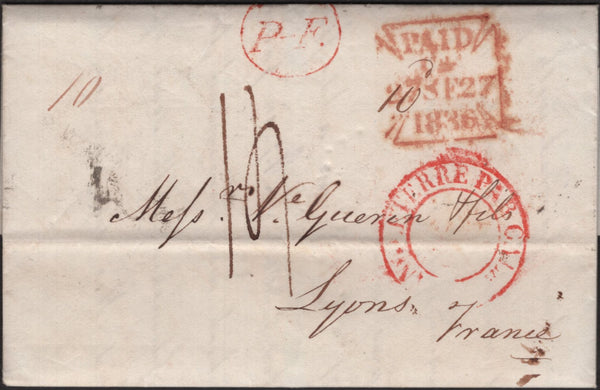 P-F.
PAID
27SE27
1836
10
10d
L
Messrs. Ve Guerin & fils
ANGLETERRE PAR CALAIS
Lyons.
France